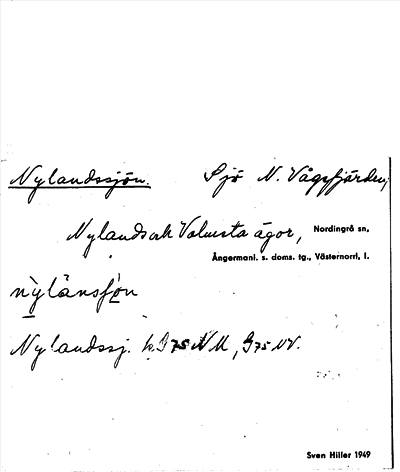 Nylandssjön. Sjö N. Vågsfjärden,
Nylands och Valmsta ägor, Nordingrå sn,
Ångermanl. s. doms. tg., Västernorrl, l.
nỳlánsjön
Nylandssj. k. G75 NV.
Sven Hiller 1949